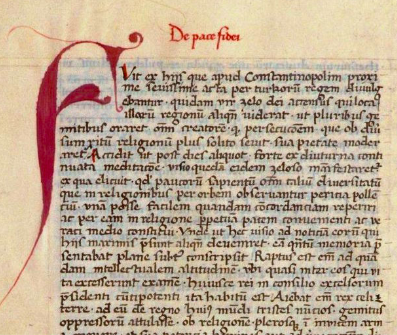 De pace fidei
Fvit ex hijs que apud Constantinopolim proxi
me seuissime acta per turkorũ regem diuulg
ebantur · quidam vir zelo dei accensus · qui loca
illorũ regionũ aliqñ viderat · ut pluribus ge
mitibus oraret om̃ creatorẽ · q̃ persecucõem · que ob diũ
sum ritũ religionũ plus solito seuit · sua pietate moder
aret̃ Accidit ut post dies aliquot · forte ex diuturna conti
nuata meditacõe · visio quedã eidem zeloso manifestaret̃
ex qua elicuit · qd̓ paucorũ sapientũ om̃ taliũ diuersitatũ
que in religionibus per orbem obseruantur pericia polle
ciũ · vnã posse facilem quandam cõcordanciam reperiri
ac per eam in religione p̱petuã pacem conuenienti ac ve
raci medio constitui · Vnde ut hec visio ad noticiã eorũ qui
hijs maximis p̃sunt aliqñ deueniret · eã qñtũ memoria p̃
sentabat plane subt̓ conscripsit · Raptus est em̃ ad quã
dam intellectualem altitudinẽ · vbi quasi inter eos qui vi
ta excesserunt examẽ · huiusce rei in consilio excelsorum
p̃sidenti cũctipotenti ita habitũ est · Aiebat em̃ rex celi ⁊
terre · ad eũ de regno huiꝰ mũdi tristes nũcios · gemitus
oppressorũ attulisse · ob religionẽ · plerosq̃ ĩ inuicem arm